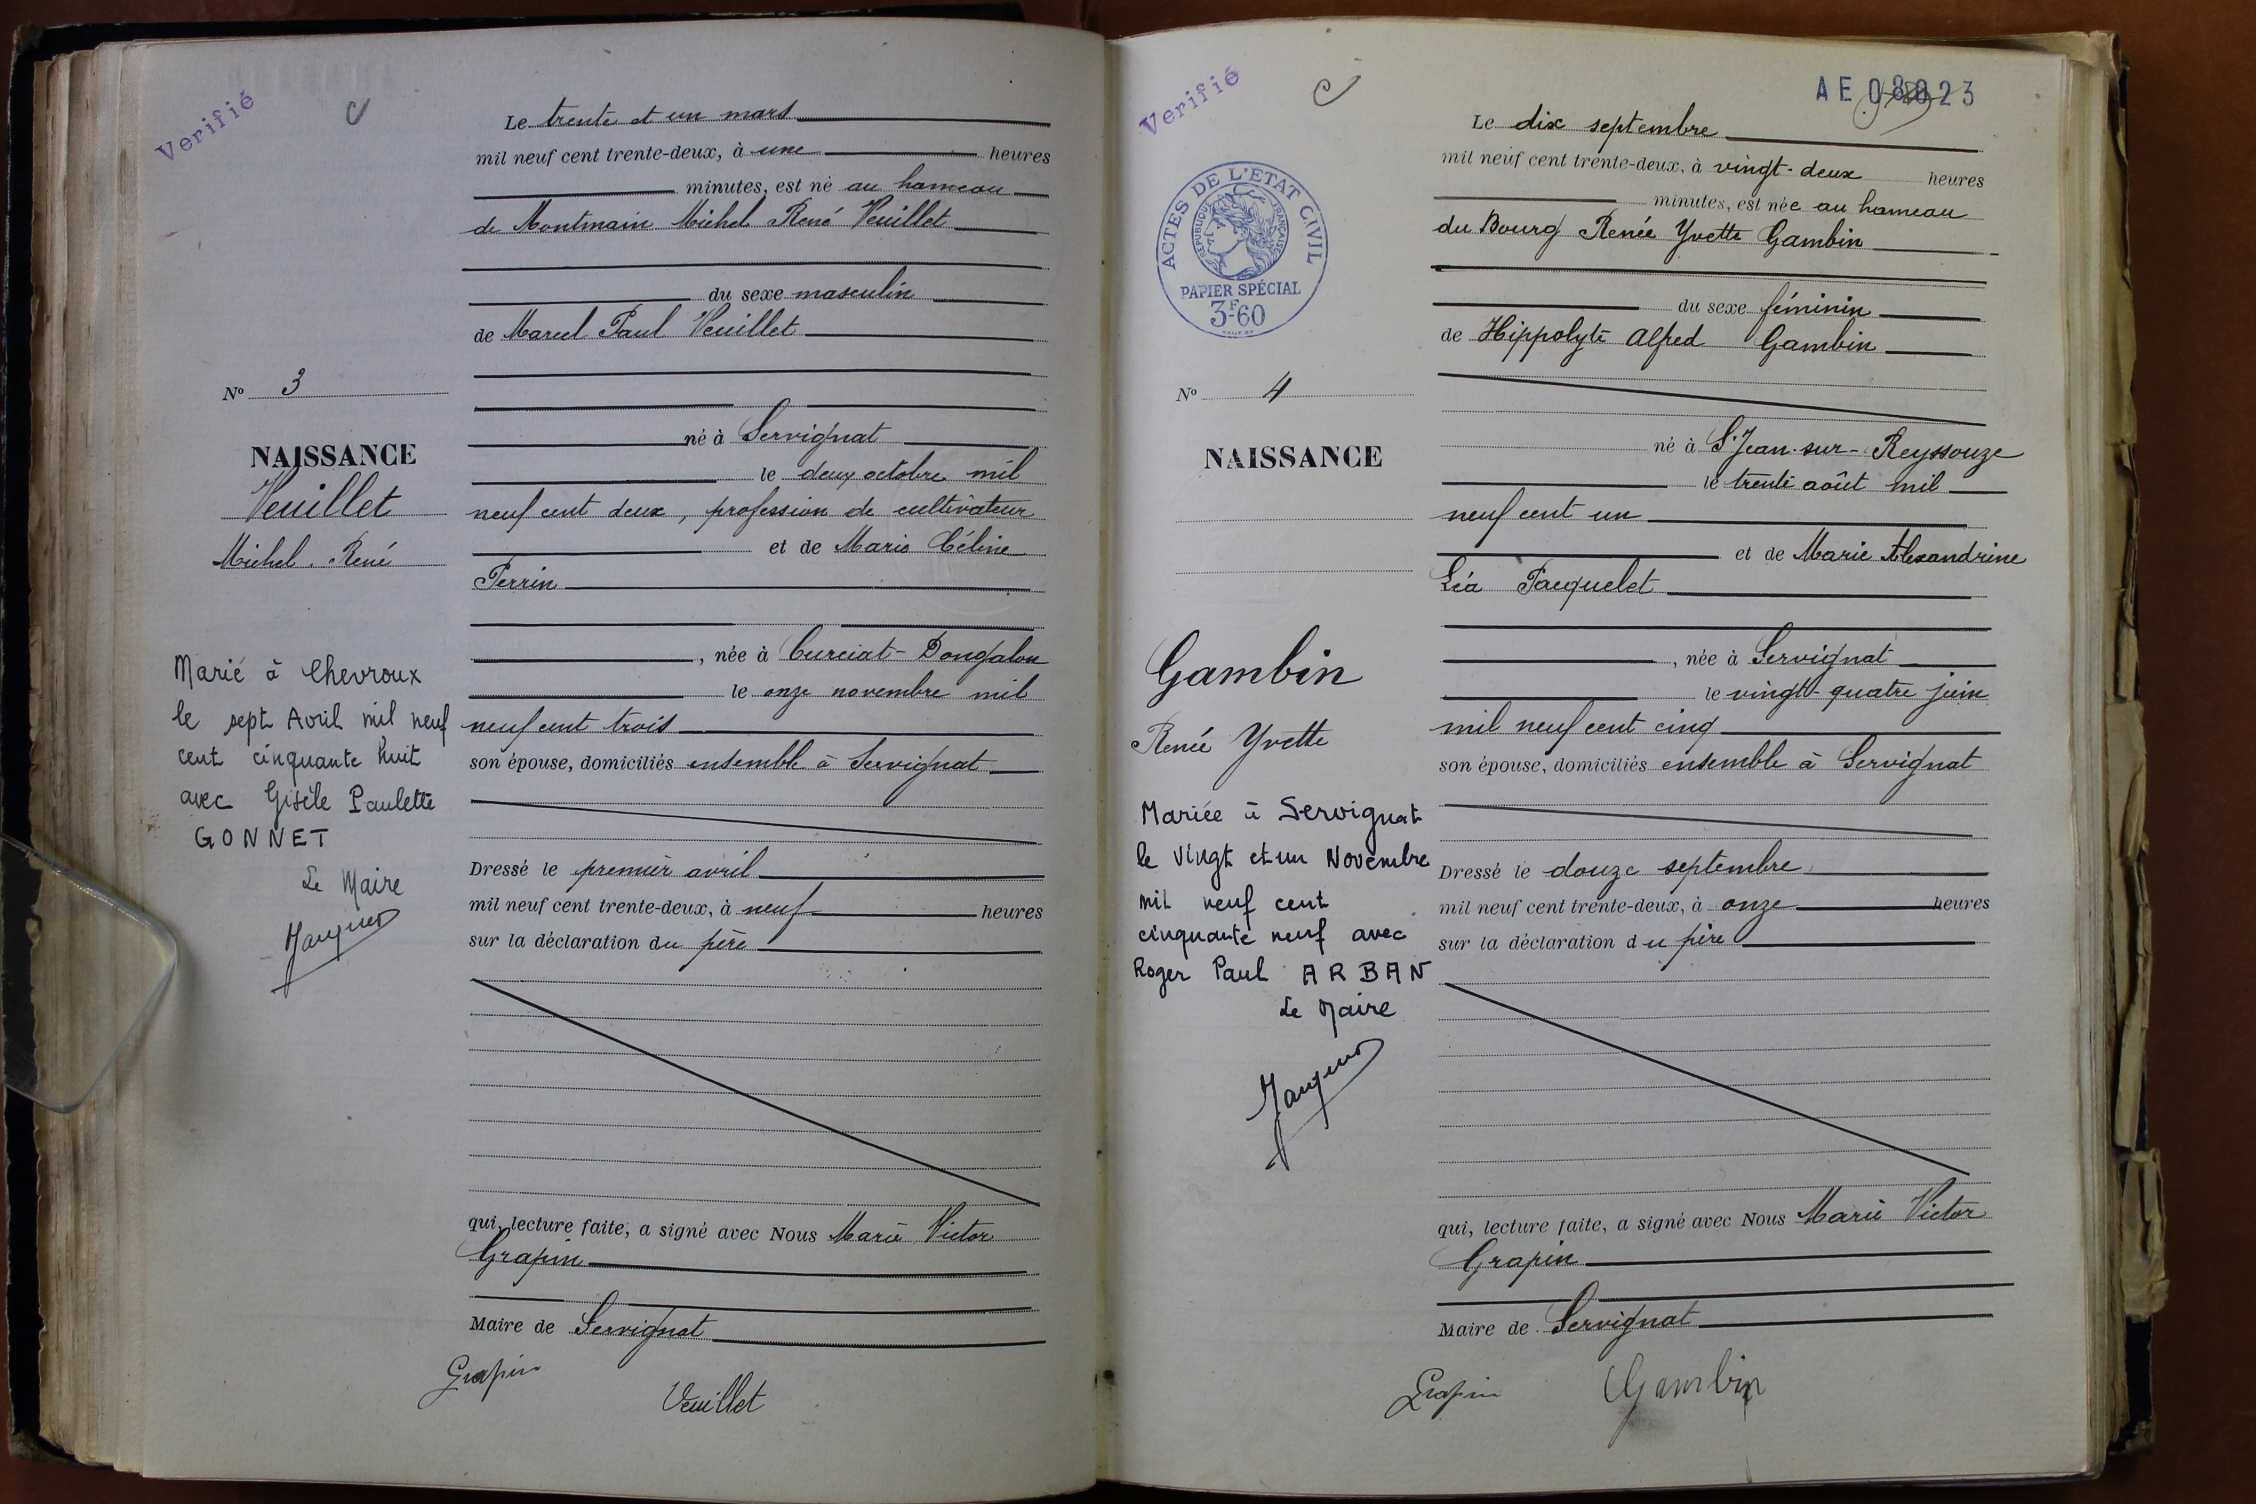 Verifié
C
Le trente et un mars
mil neuf cent trente-deux, à une heures
minutes, est né au hameau
de Montmain Michel René Veuillet
du sexe masculin
de Marcel Paul Veuillet
né à Servignat
le deux octobre mil
neuf cent deux, profession de cultivateur
et de Marie Céline
Perrin
, née à Curciat-Dongalon
le onze novembre mil
neuf cent trois
son épouse, domiciliés ensemble à Servignat
Dressé le premier avril
mil neuf cent trente-deux, à neuf heures
sur la déclaration du père
qui, lecture faite, a signé avec Nous Marie Victor
Grapin
Maire de Servignat
Grapin
Veuillet
No 3
NAISSANCE
Veuillet
Michel. René
Marié à Chevroux
le sept Avril mil neuf
cent cinquante huit
avec Gisèle Paulette
GONNET
Le Maire
Verifié
C
AE 08823
ACTES DE L'ETAT CIVIL
REPUBLIQUE FRANÇAISE
PAPIER SPÉCIAL
3F60
Le dix septembre
mil neuf cent trente-deux, à vingt-deux heures
minutes, est née au hameau
du Bourg Renée Yvette Gambin
du sexe féminin
de Hippolyte Alfred Gambin
né à St Jean-sur-Reyssouze
le trente août mil
neuf cent un
et de Marie Alexandrine
Léa Pacquelet
, née à Servignat
le vingt-quatre juin
mil neuf cent cinq
son épouse, domiciliés ensemble à Servignat
Dressé le douze septembre
mil neuf cent trente-deux, à onze heures
sur la déclaration du père
qui, lecture faite, a signé avec Nous Marie Victor
Grapin
Maire de Servignat
Grapin
Gambin
No 4
NAISSANCE
Gambin
Renée Yvette
Mariée à Servignat
le vingt et un Novembre
mil neuf cent
cinquante neuf avec
Roger Paul ARBAN
Le Maire